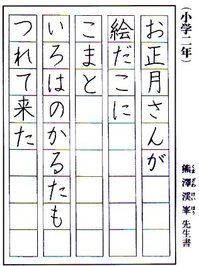 （小学二年）
熊澤溪峯先生書
お正月さんが
絵だこに
こまと
いろはのかるたも
つれて来た